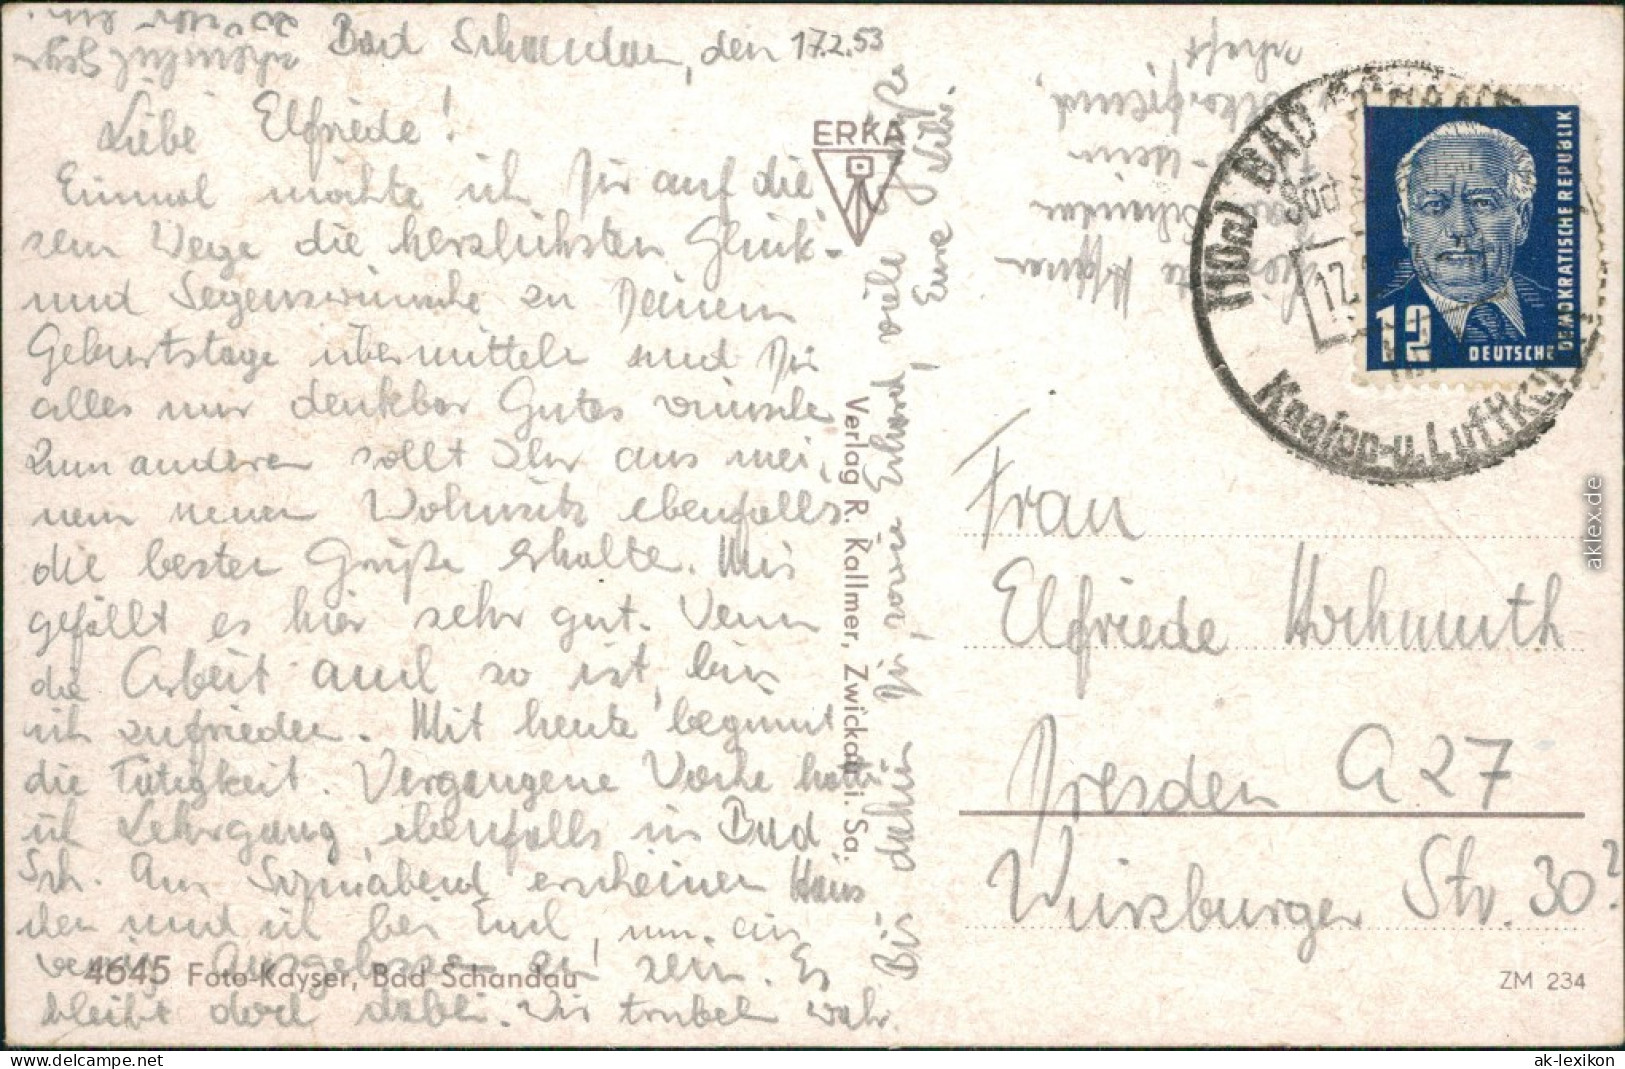 Bad Schandau, den 17.2.53
Liebe Elfriede!
Einmal möchte ich Dir auf die
sem Wege die herzlichsten Glück-
und Segenswünsche zu Deinem
Geburtstage übermitteln und Dir
alles nur denkbar Gutes wünschen
Zum anderen sollt Ihr aus mei,
nem neuen Wohnsitz ebenfalls
die besten Grüße erhalten. Mir
gefällt es hier sehr gut. Wenn
die Arbeit auch so ist, bin
ich zufrieden. Mit heute beginnt
die Tätigkeit. Vergangene Woche hatte
ich Lehrgang, ebenfalls in Bad
Sch. Am Sonnabend erscheinen Häns
chen und ich bei Euch, um ein
wenig ausgelassen zu sein. Es
bleibt doch dabei. Wir trubeln wahr
Bis dahin Dir, sowie Erhard viele
Eure
ERKA
Verlag R. Kallmer, Zwickau i. Sa.
4645 Foto-Kayser, Bad Schandau
ZM 234
(10a) BAD SCHANDAU
17.2
Kneipp-u. Luftkur
12
DEUTSCHE DEMOKRATISCHE REPUBLIK
Frau
Elfriede Hochmuth
Dresden A 27
Würzburger Str. 30?
aklex.de
www.ak-lexikon.de
ak-lexikon